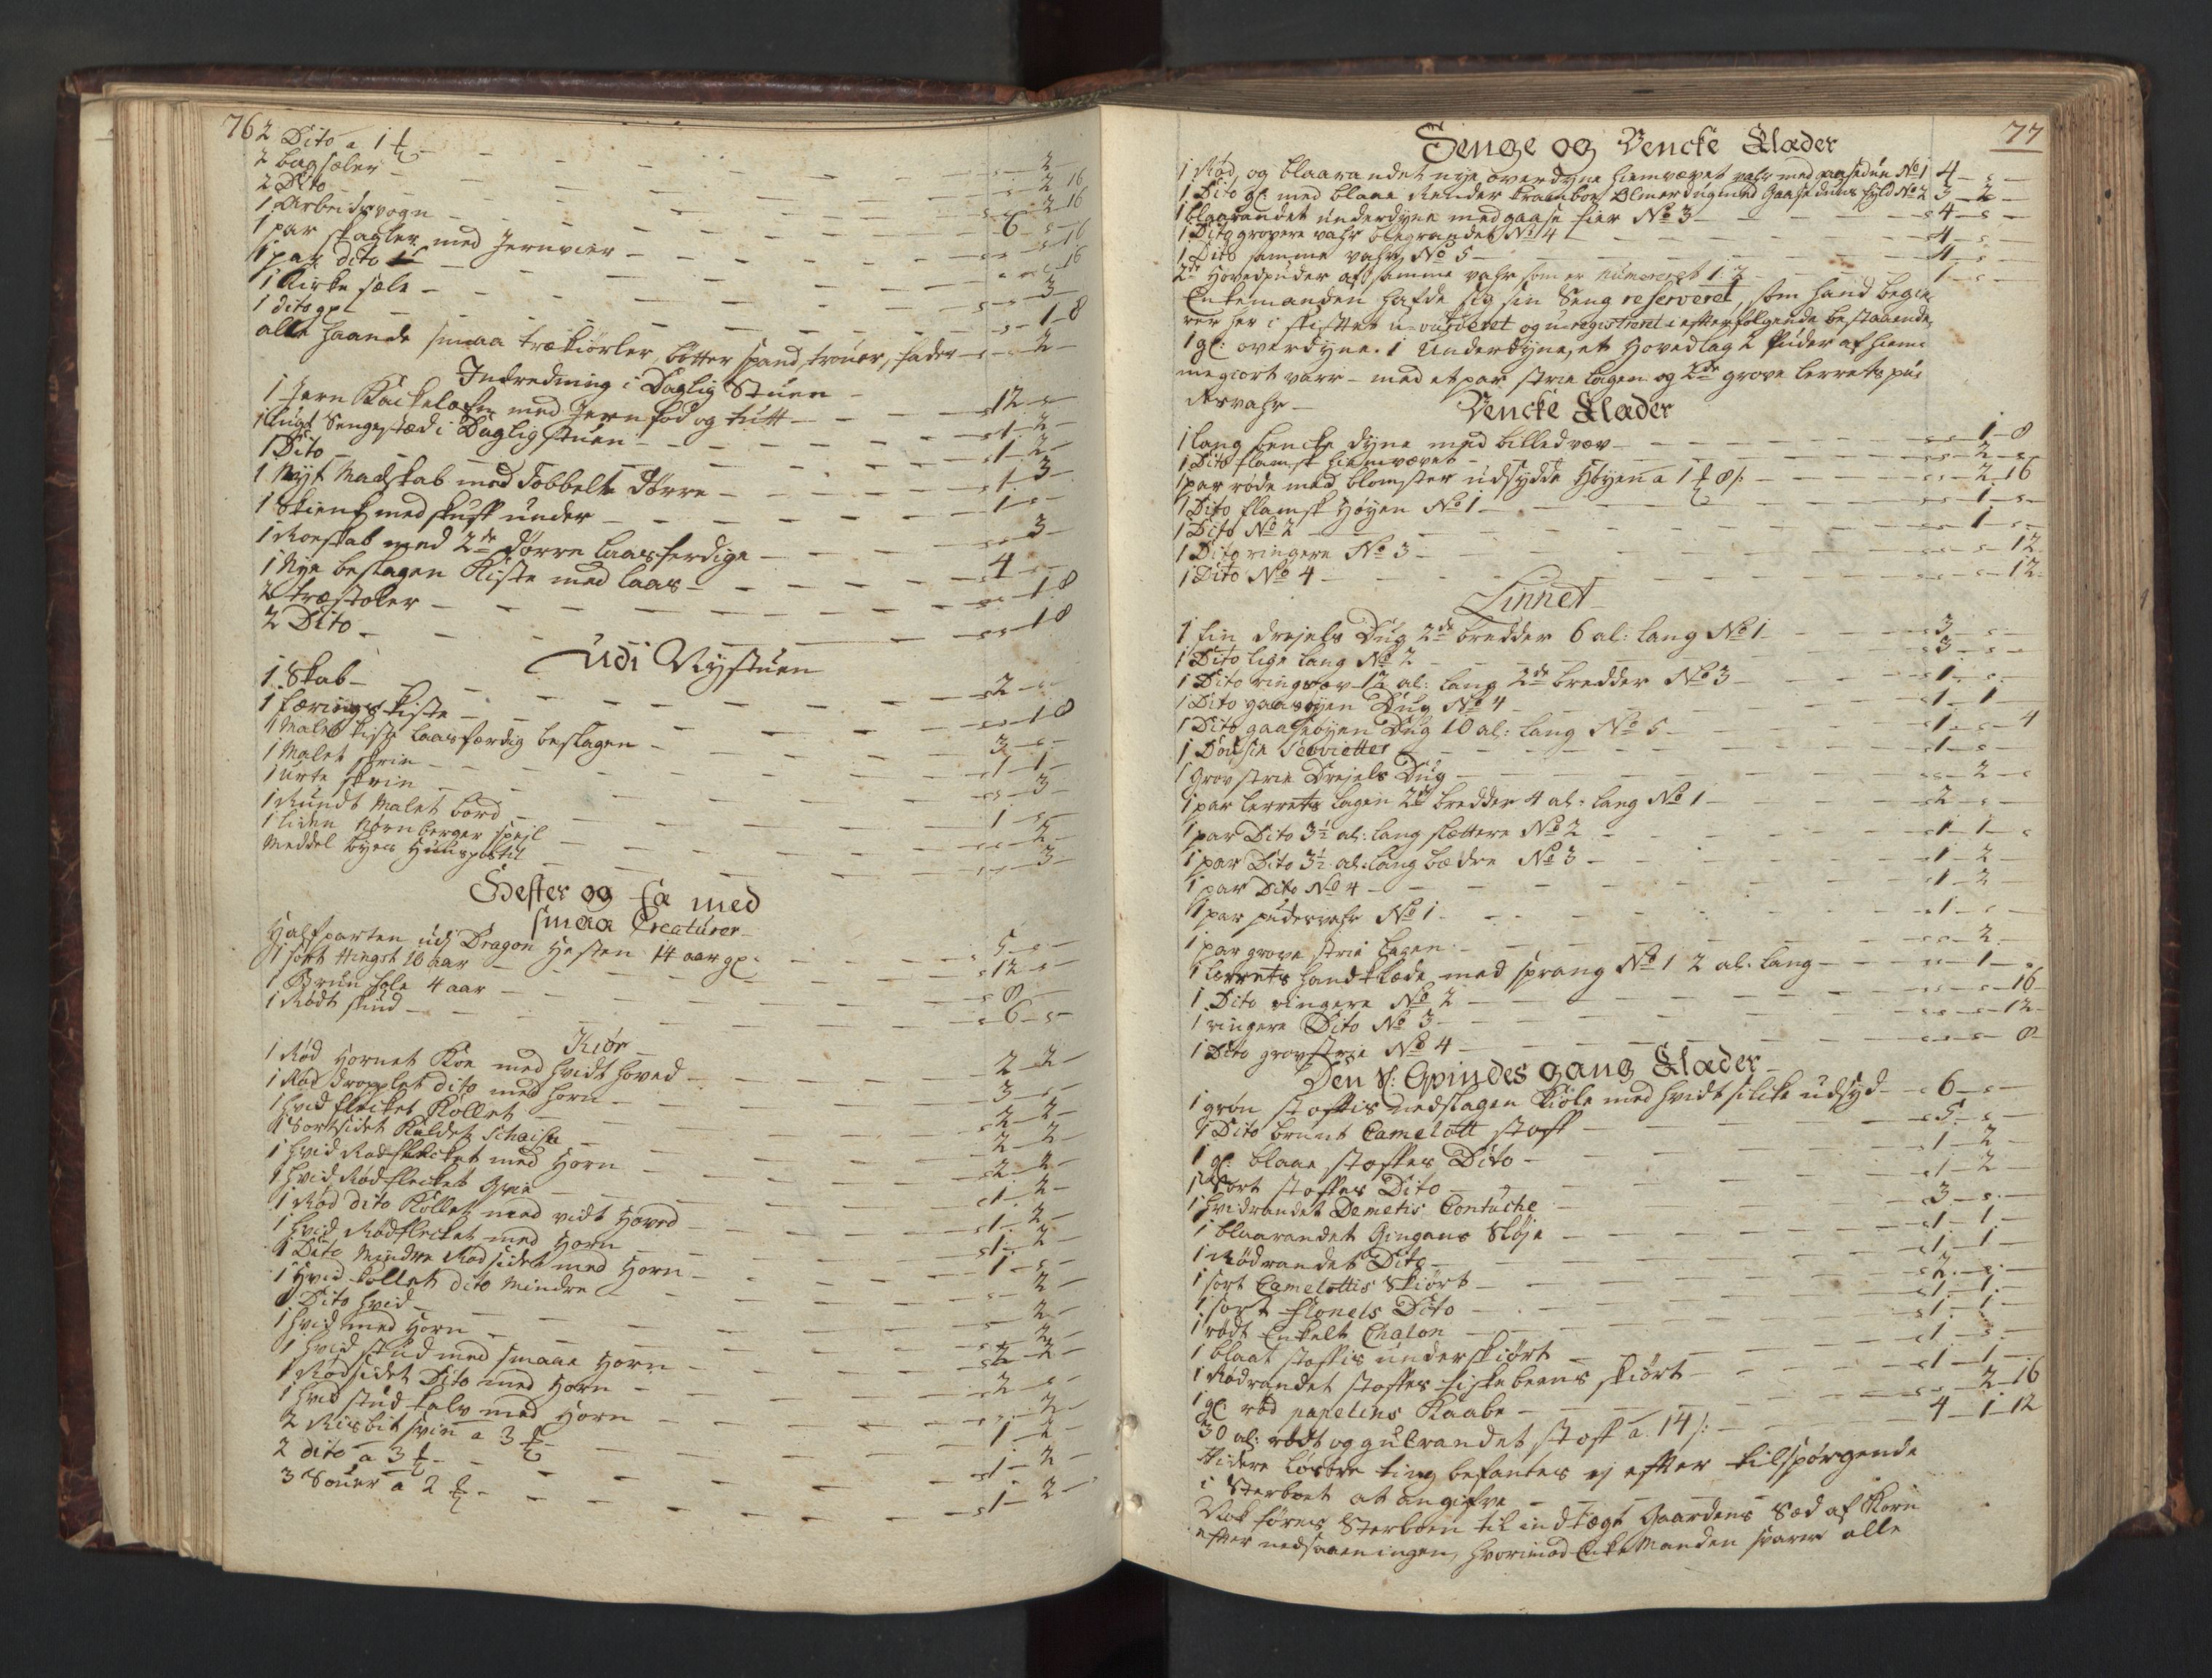 76
2 Dito a 1 ℔ - 2 -
2 bagsæler - 2 16
2 Dito - 2 16
1 Arbeidsvogn - 6 - s -
1 par skagler med Jernvier - 16
1 par dito - 16
1 Kirke sæle - 3 -
1 dito gl - 1 - 8
alle haande smaa trækiørler, bøtter spand, trouer, fader - 2 -
Indredning i Daglig Stuen
1 Jern Kackelofn med Jern fod og tutt - 12 - s -
1 lugt Sengestæd i Daglig stuen - 1 - 2 -
1 Dito - 1 - 2 -
1 Nyt Madskab med Dobbelte Dørre - 1 - 3 -
1 Skienk med skuff under - 1 - s -
1 Roeskab med 2de Dørre laasferdige - 3 -
1 Nye beslagen Kiste med laas - 4 - s -
2 træstoler - 1 8
2 Dito - 1 8
Udi Nystuen
1 Skab - 2 -
1 færings kiste - 1 8
1 Malet kiste laasfærdig beslagen - 3 - s -
1 Malet skrin - 1 - 1 -
1 Urte skrin - 3 -
1 Rundt Malet bord - 1 - s -
1 liden Nørnberger speil - 2 -
Meddel byes Huuspostil - 3 -
Hester og fæ med
smaa Creaturer
Halfparten udi Dragon Hesten 14 aar gl: - 5 - s -
1 sort Hingst 16 aar - 12 - s -
1 Bruun fole 4 aar - 8 -
1 Rødt skiud - 6 - s -
Kiør
1 Rød Hornet Koe med hvidt hoved - 2 - 2 -
1 Rød Dropplet dito med horn - 3 - s -
1 hvid flecket Kollet - 2 - 2 -
1 Sortsidet Kuldet - 2 - 2 -
1 hvid Rødflecket med Horn - 2 - 2 -
1 hvid Rødflecket Qvie - 1 - 2 -
1 Rød dito Kollet med vidt Hoved - 1 - 2 -
1 hvid Rødflecket med Horn - 1 - 2 -
1 Dito Mindre Rødsidet med Horn - 1 - s -
1 Hvid kollet dito Mindre - 2 -
1 Dito hvid - 2 -
1 hvid med Horn - 2 -
1 hvid stud med smaae Horn - 2 - 2 -
1 Rødsidet Dito med Horn - 2 - s -
1 hvid stud kalv med Horn - 2 -
2 Risbit sviin a 3 ℔ - 1 - 2 -
2 dito a 3 ℔ - 1 - 2 -
3 Souer a 2 ℔ - 1 - 2 -
77
Senge og Bencke Klæder
1 Rød og blaarandet nye overdyne hiemvævet vahr med gaasedun No 1 4 - s -
1 Dito gl: med blaae Render Olmerdug med Gaasedunsfyld No 2 3 - 2 -
1 blaarandet underdyne med gaase fier No 3 - 4 - s -
1 Dito grovere vahr blegrandet No 4 - 4 - s -
1 Dito samme vahr No 5 - 4 - s -
2de Hovedpuder af samme vahr som er numereret 1. 2 - 1 - s -
Enkemanden hafde sig sin Seng reserveret, som hand begie
rer her i skiftet u-vurderet og u-registreret i efterfølgende bestaaende
1 gl: overdyne. 1 Underdyne, et Hovedlag 2 Puder af hiem
megiort varr - med et par strie lagen og 2de grove lerrets pu
desvahr -
Bencke Klæder
1 lang bencke dyne med billedvæv - 1 - 8
1 Dito flamsk hiemvævet - 2 - s -
1 par røde med blomster udsydde Høyen a 1 ℔ 8 s: - 2 16
1 Dito flamsk Høyen No 1 - 1 - s -
1 Dito No 2 - 1 - s -
1 Dito ringere No 3 - 12
1 Dito No 4 - 12
Linnet
1 fin Drejels Dug 2de bredder 6 al: lang No 1 - 3 - s -
1 Dito lige lang No 2 - 3 - s -
1 Dito ringere 12 al: lang 2de bredder No 3 - 1 - s -
1 Dito gaasøyen Dug No 4 - 1 - 1
1 Dito gaaseøyen Dug 10 al: lang No 5 - 1 - s - 4
1 Dousin Servietter - 1 - s
1 Grov strie Drejels Dug - 2 - s
1 par lerrets lagen 2de bredder 4 al: lang No 1 - 2 - s -
1 par Dito 3½ al: lang slettere No 2 - 1 - 1 - s
1 par Dito 3½ al: lang bædre No 3 - 1 - 2 -
1 par Dito No 4 - 1 - 2 -
1 par pudervahr No 1 - 1 - s -
1 par grove strie lagen - 2 -
1 lerrets handklæde med sprang No 1 2 al: lang - 1 - s
1 Dito ringere No 2 - 16
1 ringere Dito No 3 - 12
1 Dito grov strie No 4 - 8
Den Sl: Qvindes gang Klæder
1 grøn stoffis nedslagen Kiole med hvidt silike udsyd - 6 - s -
1 Dito bruunt Camelott stoff - 5 - s -
1 gl: blaae stoffes Dito - 1 - 2 -
1 Sort stoffes Dito - 1 - 2 -
1 hvidrandet Demetis Contuche - 3 - s -
1 blaarandet Gingans Trøje - 1 - 1 -
1 Rødrandet Dito - 1 - 1 -
1 sort Camelottis Skiørt - 2 - s -
1 sort flonels Dito - 1 - 1 -
1 rødt Enkelt Chalon - 1 - 1 -
1 blaat stoffis underskiørt - 1 - s -
1 Rødrandet stoffes fiskebeens skiørt - 1 - 1 -
1 gl: rød papelins Kaabe - 2 16
30 al: rødt og gulrandet stoff a 14 s: - 4 - 1 - 12
Videre løsøre ting befantes ej efter tilspørgende
i Sterboet at angifve -
Nok føres Sterboen til indtægt Gaardens Sæd af Korn
efter nedsaaeningen, hvorimod EnkeManden svarer alle